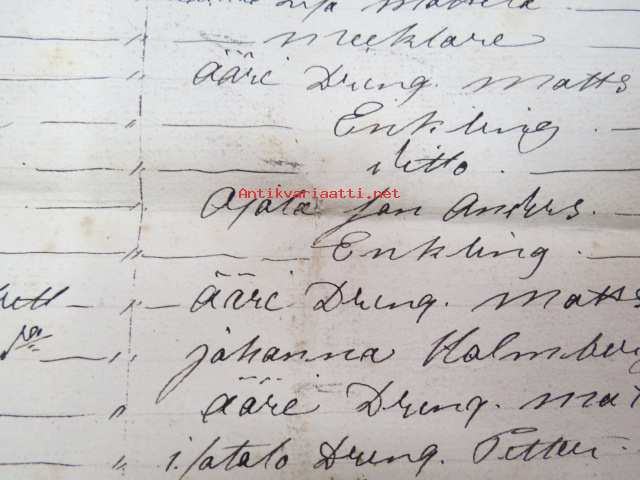 " meeklare
" ääri Dreng. Matts
" Enkling.
" ditto.
Antikvariaatti.net
Ajala Jan Anders.
" Enkling.
" ääri Dreng. Matts
" johanna Holmberg
" ääri Dreng. Mat
" Dreng. Petter.